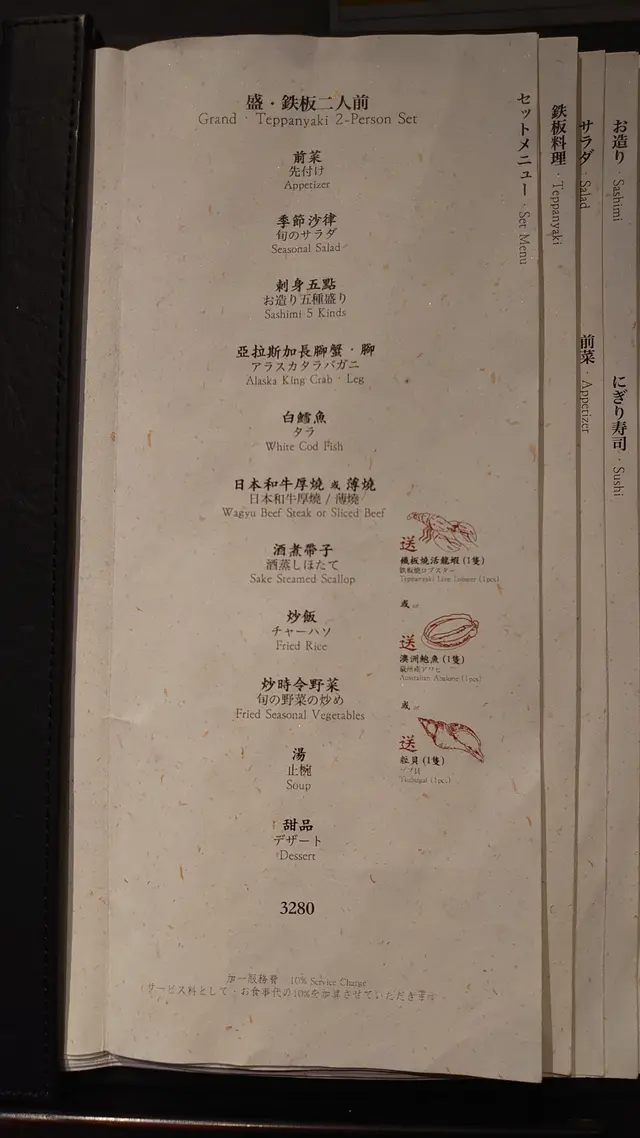 盛・鉄板二人前
Grand・Teppanyaki 2-Person Set
前菜
先付け
Appetizer
季節沙律
旬のサラダ
Seasonal Salad
刺身五點
お造り五種盛り
Sashimi 5 Kinds
亞拉斯加長腳蟹・腳
アラスカタラバガニ
Alaska King Crab・Leg
白鱈魚
タラ
White Cod Fish
日本和牛厚燒 或 薄燒
日本和牛厚燒 / 薄燒
Wagyu Beef Steak or Sliced Beef
酒煮帶子
酒蒸しほたて
Sake Steamed Scallop
炒飯
チャーハン
Fried Rice
炒時令野菜
旬の野菜の炒め
Fried Seasonal Vegetables
湯
止椀
Soup
甜品
デザート
Dessert
3280
送
鐵板燒活龍蝦 (1隻)
鉄板燒ロブスター
Teppanyaki Live Lobster (1pcs)
或 or
送
澳洲鮑魚 (1隻)
豪州産アワビ
Australian Abalone (1pcs)
或 or
送
粒貝 (1隻)
ツブ貝
Tsubugai (1pcs)
加一服務費 10% Service Charge
サービス料として・お食事代の10%を加算させていただきます
セットメニュー・Set Menu
鉄板料理・Teppanyaki
サラダ・Salad
前菜・Appetizer
お造り・Sashimi
にぎり寿司・Sushi